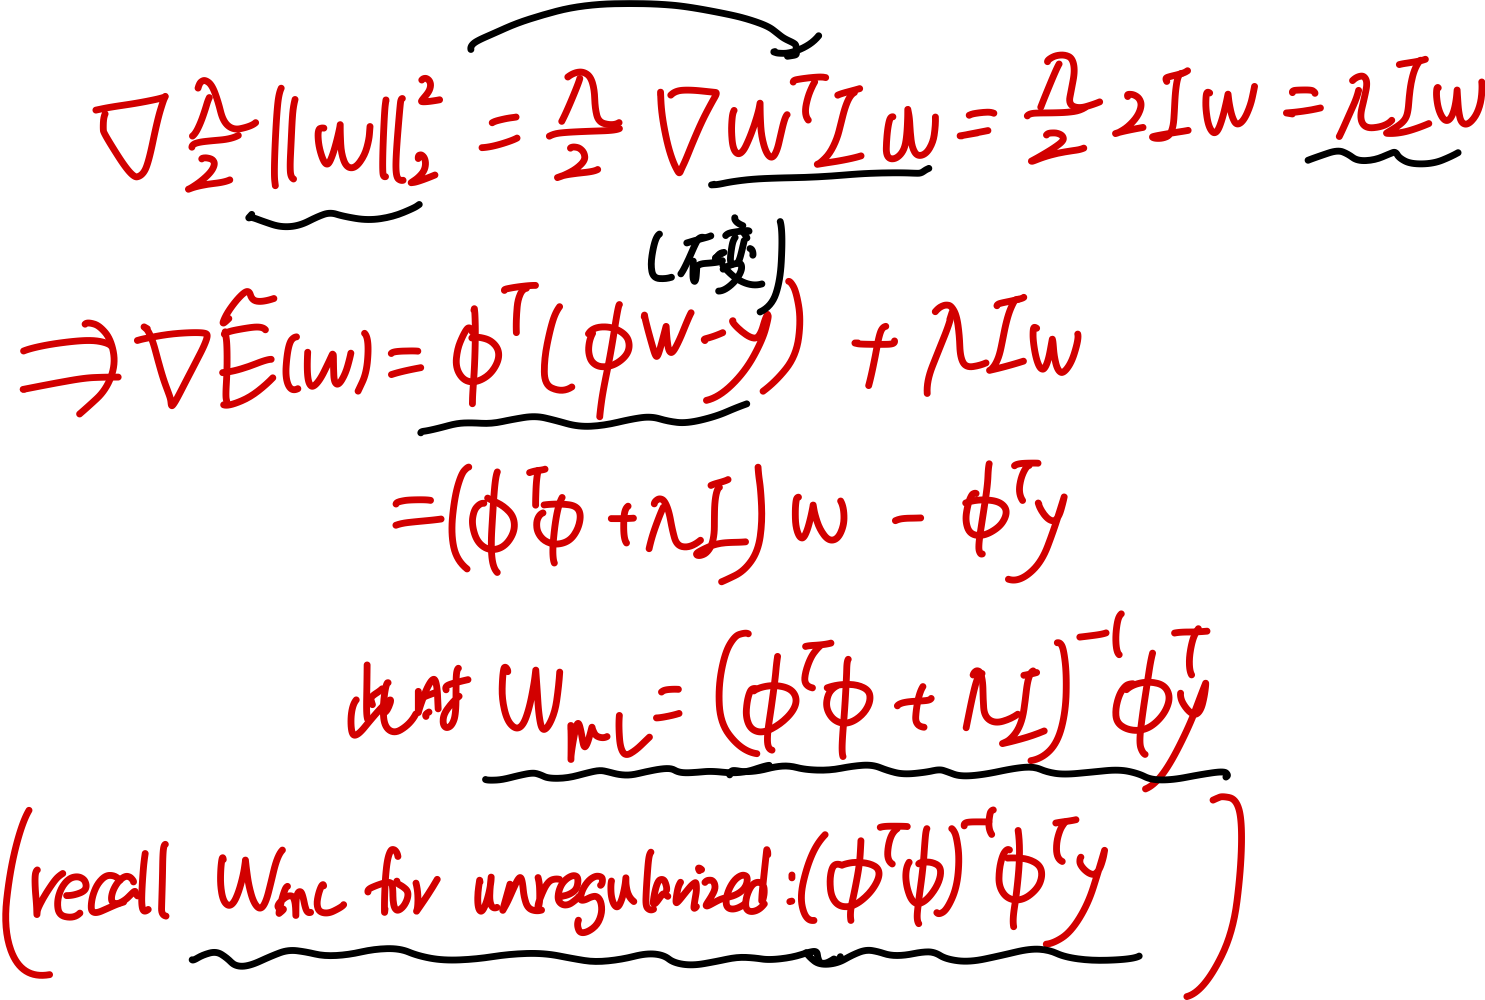 ∇ λ/2 ||w||₂² = λ/2 ∇ wᵀIw = λ/2 2Iw = λIw
(不变)
⇒ ∇Ẽ(w) = ϕᵀ(ϕw-y) + λIw
= (ϕᵀϕ + λI) w - ϕᵀy
W_ML = (ϕᵀϕ + λI)⁻¹ ϕᵀy
(recall W_ML for unregularized: (ϕᵀϕ)⁻¹ϕᵀy)